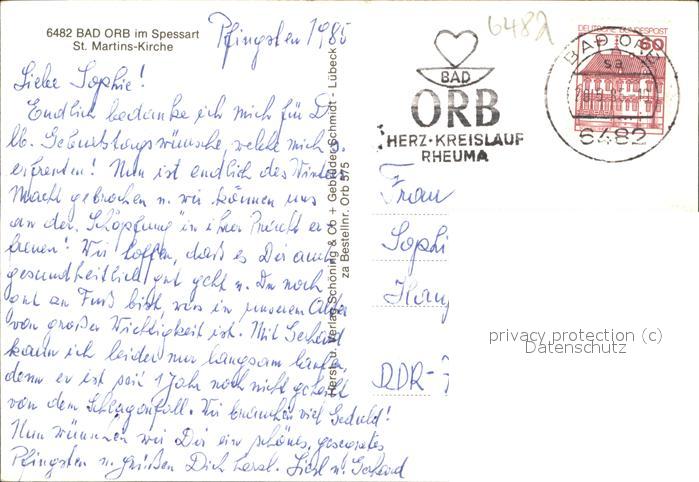 6482 BAD ORB im Spessart
St. Martins-Kirche
Pfingsten 1985
Liebe Sophie!
Endlich bedanke ich mich für D
lb. Geburtstagswünsche, welche mich s.
erfreuten! Nun ist endlich des Winters
Macht gebrochen u. wir können uns
an der "Schöpfung" in ihrer Pracht er
freuen! Wir hoffen, daß es Dir auch
gesundheitlich gut geht u. Du noch
gut zu Fuß bist, was in unserem Alter
von großer Wichtigkeit ist. Mit Gerhard
kann ich leider nur langsam laufen,
denn er ist seit 1 Jahr noch nicht geheilt
von dem Schlaganfall. Wir brauchen viel Geduld!
Nun wünschen wir Dir ein schönes, gesegnetes
Pfingsten u. grüßen Dich herzl. Liesl u. Gerhard
Herst. u. Verlag Schöning & Co + Gebrüder Schmidt - Lübeck
za Bestellnr. Orb 575
6482
BAD
ORB
HERZ·KREISLAUF
RHEUMA
DEUTSCHE BUNDESPOST
60
BAD ORB
sa
6482
Frau
Sophi
DDR-
privacy protection (c)
Datenschutz